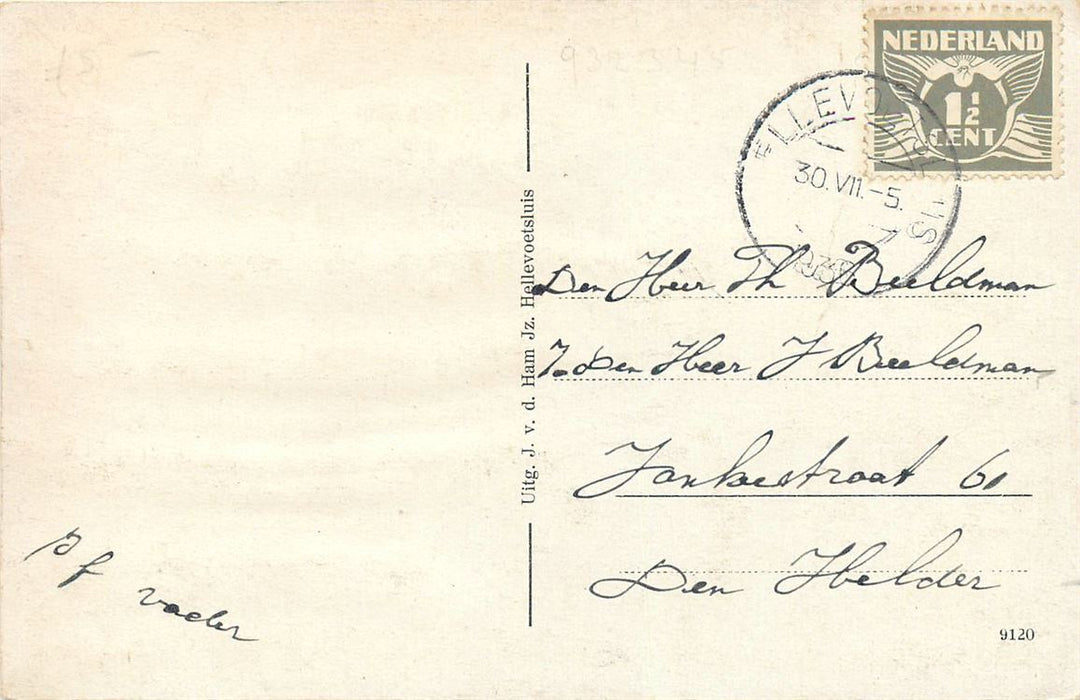 932345
NEDERLAND
1½
CENT
ELLEVO
30.VII.-5.
Uitg. J. v. d. Ham Jz. Hellevoetsluis
Den Heer Th Beeldman
Den Heer J Beeldman
straat 60
Den Helder
vader
9120